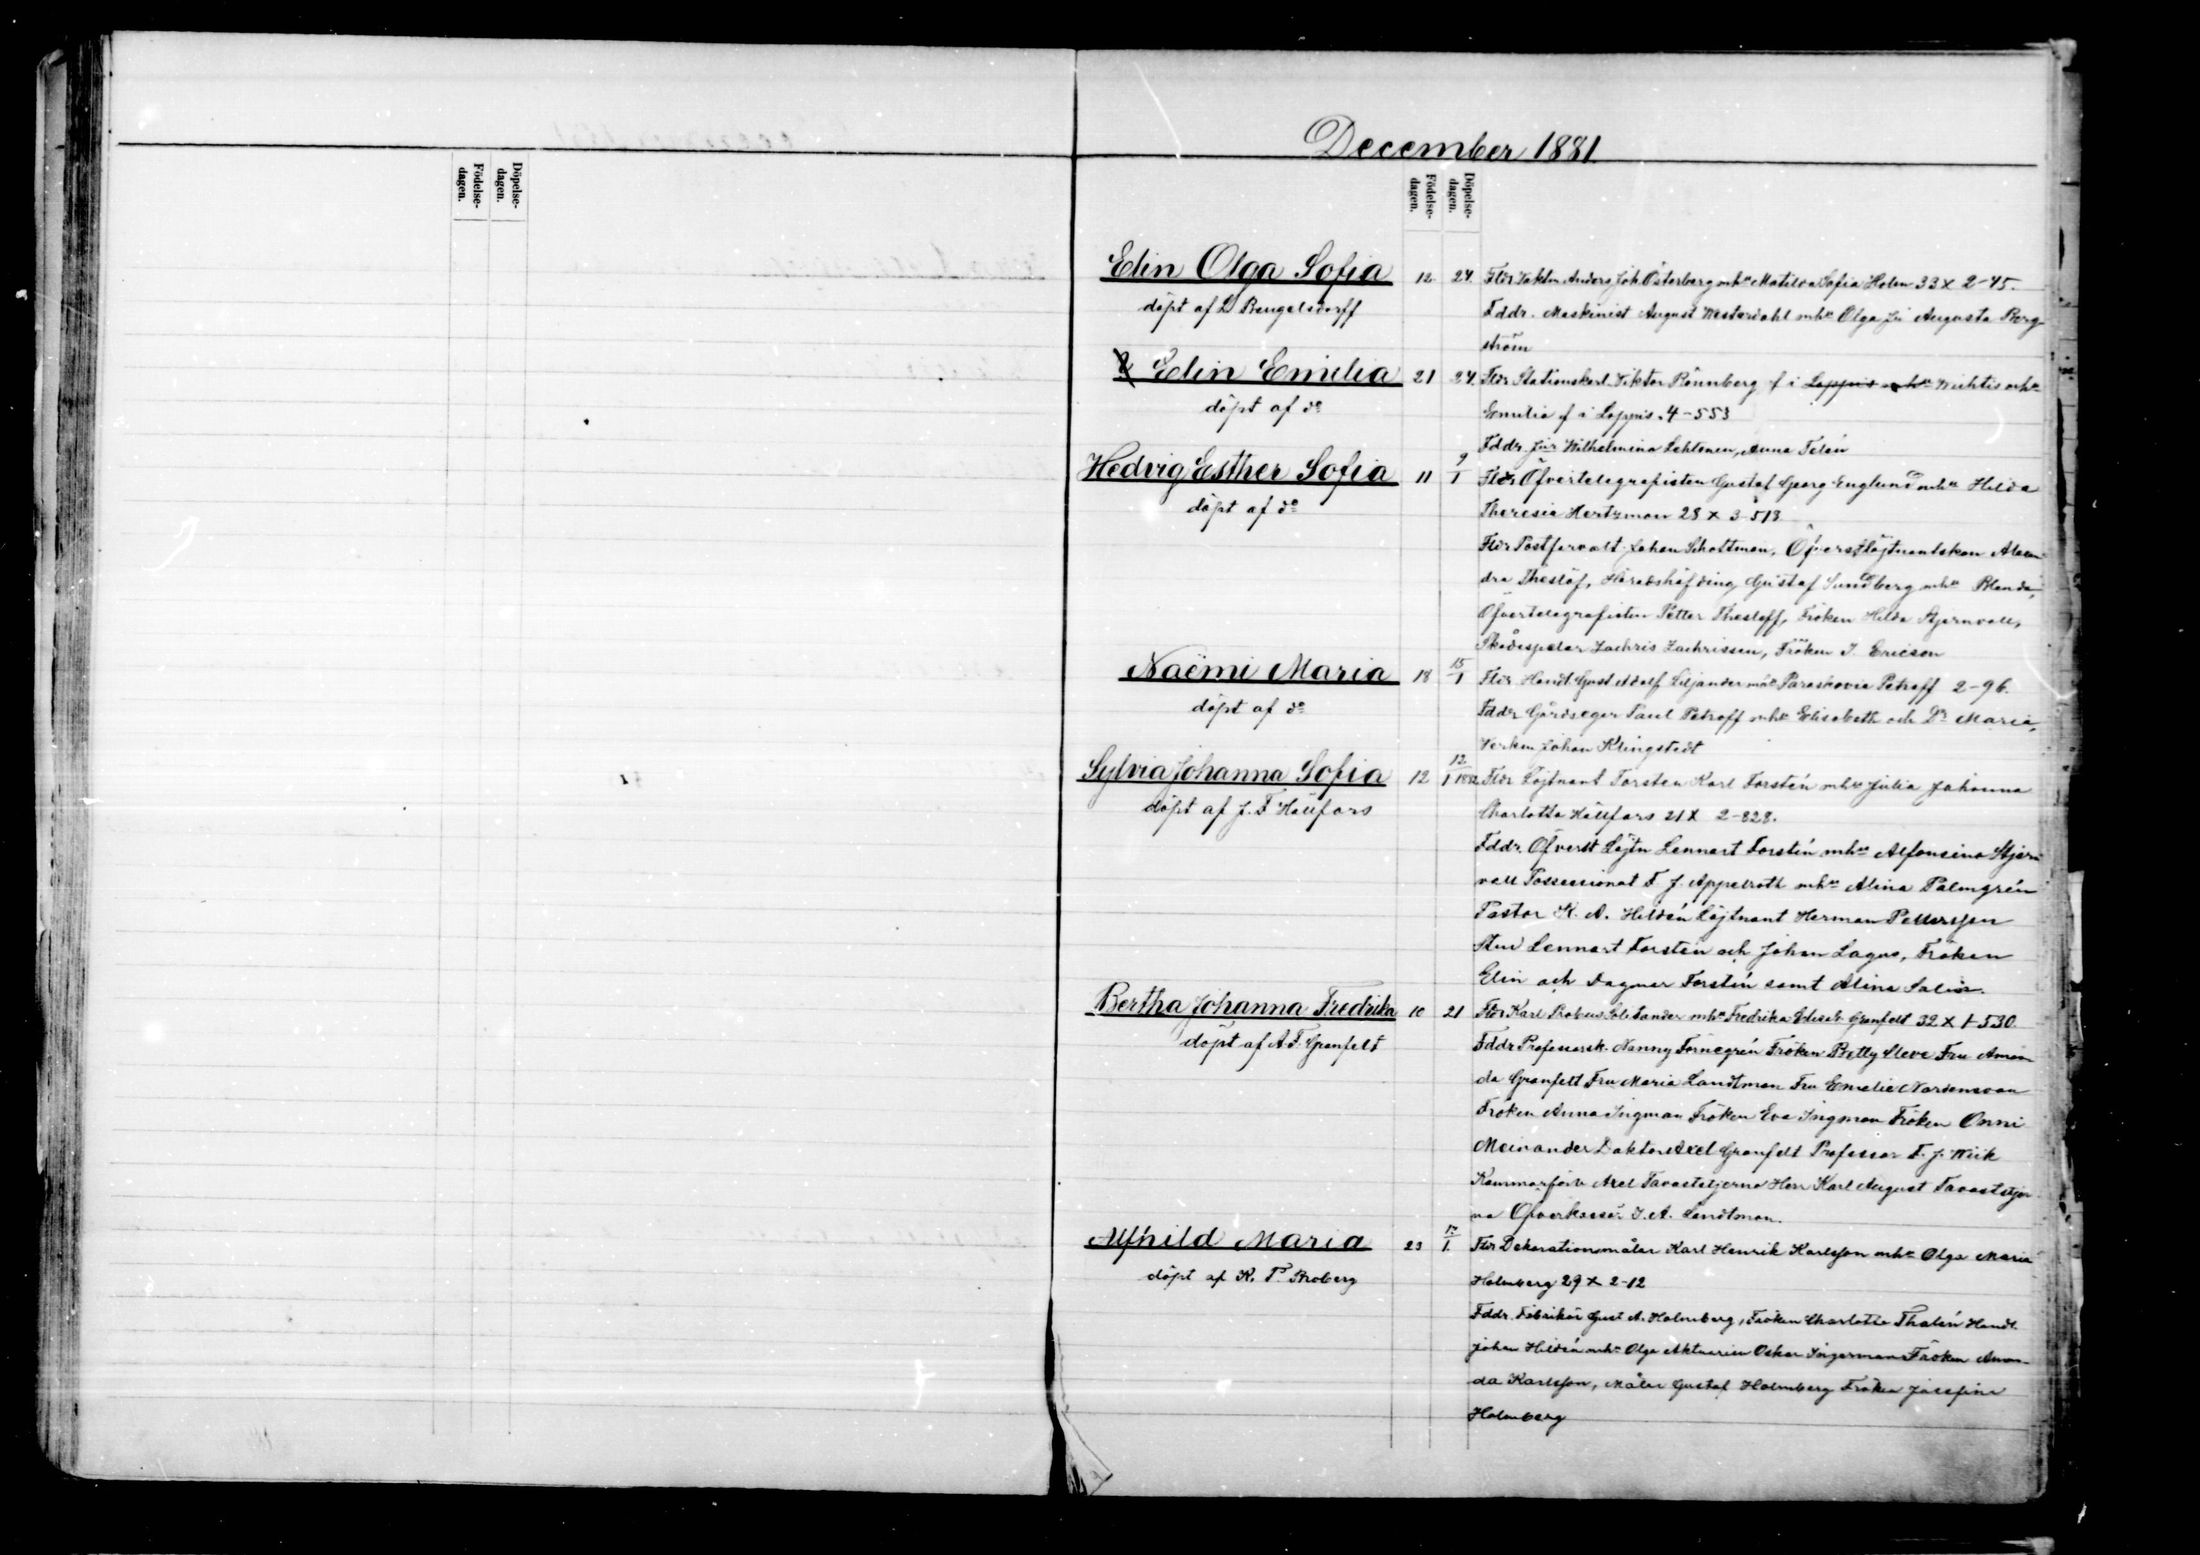 Födelse-
dagen.
Döpelse-
dagen.
December 1881
Födelse-
dagen.
Döpelse-
dagen.
Elin Olga Sofia 12 24 Fldr Vaktm Anders Joh Österberg mhu Matilda Sofia Holm 33 x 2-45.
döpt af L Bengelsdorff
Fddr. Maskinist August Westerdahl mhu Olga Augusta Berg-
ström
Elin Emilia 21 24 Fldr Stationskarl Viktor Rönnberg f i Loppis mhu Wichtis mhu
döpt af do
Emilia f i Loppis. 4-553
Fddr Wilhelmina Lehtonen, Anna Telén
Hedvig Esther Sofia 11 9/1 Fldr Öfvertelegrafisten Gustaf Georg Englund mhu Hilda
döpt af do
Theresia Hertzman 28 x 3-513
Fldr Postförvalt. Johan Schottman, Öfverstlöjtnantskan Alexan
dra Theslöf, Häradshöfding Gustaf Sundberg mhu Blenda,
Öfvertelegrafisten Petter Thesleff, Fröken Hilda Stjernvall,
Skådespelar Zachris Zachrissen, Fröken I. Ericson
Naëmi Maria 18 15/1 Fldr Handl Gust Adolf Liljander mhu Paraskovia Petroff 2-96.
döpt af do
Fddr Gårdsegar Paul Petroff mhu Elisabeth och Dr Maria,
Verkm Johan Klingstedt
Sylvia Johanna Sofia 12 12/1 1882 Fldr Löjtnant Torsten Karl Forstén mhu Julia Johanna
döpt af J. F. Hällfors
Charlotta Hällfors 21 x 2-828.
Fddr. Öfverst Löjtn Lennart Forstén mhu Alfonsina Stjern
vall Possessionat F. J. Appelroth mhu Alina Palmgrén
Pastor K. A. Hildén Löjtnant Herman Pettersson
Stud Lennart Forstén och Johan Lagus, Fröken
Elin och Dagmar Forstén samt Alina Salin.
Bertha Johanna Fredrika 10 21 Fldr Karl Probus Solitander mhu Fredrika Elisab. Granfelt 32 x 1-530.
döpt af A. F. Granfelt
Fddr Professorsk. Nanny Fornegrén Fröken Betty Cleve Fru Aman
da Granfelt Fru Maria Landtman Fru Emelie Nordensvan
Fröken Anna Ingman Fröken Eva Ingman Fröken Onni
Meinander Doktor Axel Granfelt Professor F. J. Wiik
Kammarförv Axel Tavaststjerna Herr Karl August Tavaststjer
na Öfverkassör I. A. Landtman.
Alfhild Maria 23 17/1. Fldr Dekorationsmålar Karl Henrik Karlsson mhu Olga Maria
döpt af K. T. Broberg
Holmberg 29 x 2-12
Fddr Fabrikör Gust A. Holmberg, Fröken Charlotta Thalén Handl.
Johan Hildén mhu Olga Aktuarien Oskar Ingerman Fröken Aman-
da Karlsson, Målar Gustaf Holmberg Fröken Josefina
Holmberg